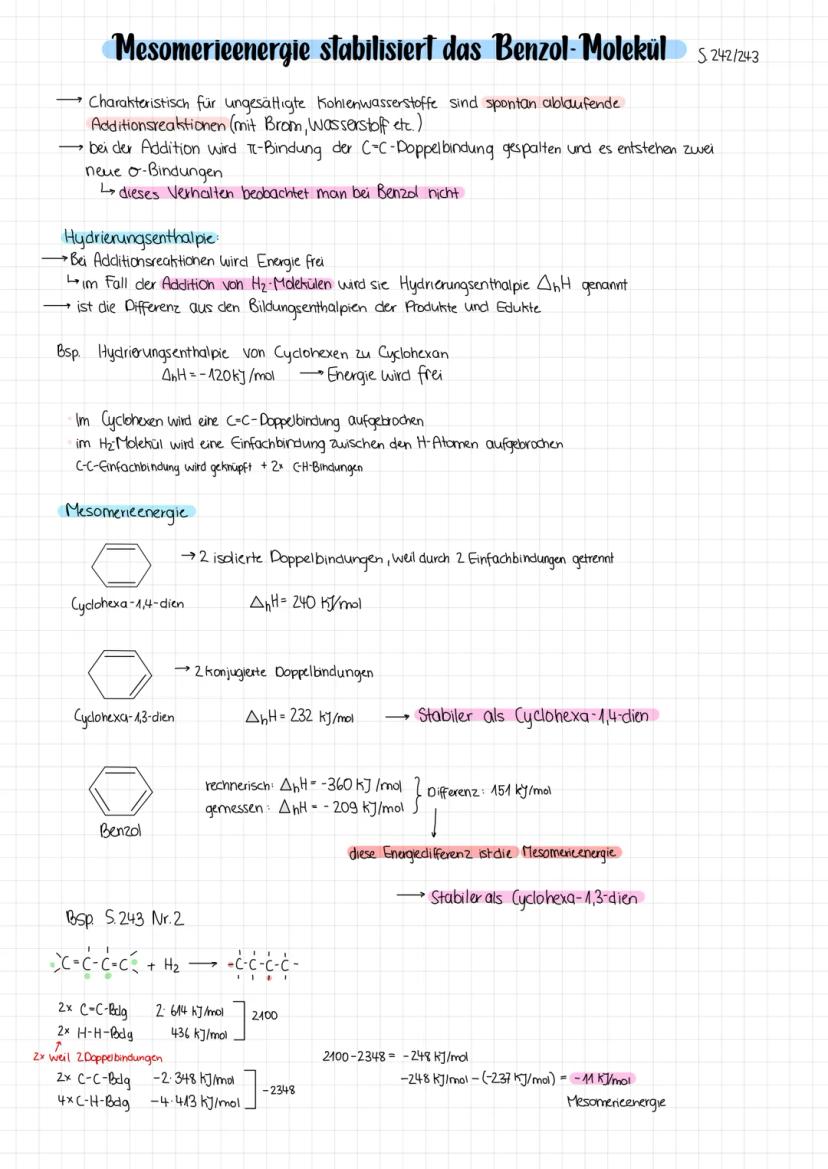 Mesomerieenergie stabilisiert das Benzol-Molekül S. 242/243
→ Charakteristisch für ungesättigte Kohlenwasserstoffe sind spontan ablaufende
Additionsreaktionen (mit Brom, Wasserstoff etc.)
→ bei der Addition wird π-Bindung der C=C-Doppelbindung gespalten und es entstehen zwei
neue σ-Bindungen
↳ dieses Verhalten beobachtet man bei Benzol nicht
Hydrierungsenthalpie:
→ Bei Additionsreaktionen wird Energie frei
↳ im Fall der Addition von H₂-Molekülen wird sie Hydrierungsenthalpie ΔhH genannt
→ ist die Differenz aus den Bildungsenthalpien der Produkte und Edukte
Bsp. Hydrierungsenthalpie von Cyclohexen zu Cyclohexan
ΔhH = -120 kJ/mol → Energie wird frei
• Im Cyclohexen wird eine C=C-Doppelbindung aufgebrochen
• im H₂ Molekül wird eine Einfachbindung zwischen den H-Atomen aufgebrochen
C-C-Einfachbindung wird geknüpft + 2x C-H-Bindungen
Mesomerieenergie
→ 2 isolierte Doppelbindungen, weil durch 2 Einfachbindungen getrennt
Cyclohexa-1,4-dien ΔhH = 240 kJ/mol
→ 2 konjugierte Doppelbindungen
Cyclohexa-1,3-dien ΔhH = 232 kJ/mol → Stabiler als Cyclohexa-1,4-dien
rechnerisch: ΔhH = -360 kJ/mol
gemessen: ΔhH = -209 kJ/mol } Differenz: 151 kJ/mol
Benzol
diese Energiedifferenz ist die Mesomerieenergie
→ Stabiler als Cyclohexa-1,3-dien
Bsp. S. 243 Nr. 2
C=C-C=C + H₂ → -C-C-C-C-
2x C=C-Bdg 2· 614 kJ/mol ] 2100
2x H-H-Bdg 436 kJ/mol
2x weil 2 Doppelbindungen
2100-2348 = -248 kJ/mol
2x C-C-Bdg -2·348 kJ/mol ] -2348
-248 kJ/mol - (-237 kJ/mol) = -11 kJ/mol
4x C-H-Bdg -4·413 kJ/mol
Mesomerieenergie